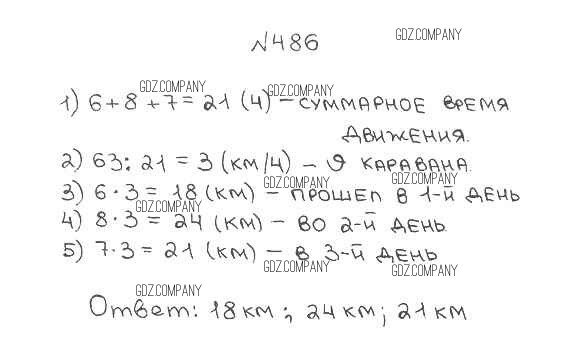 №486
GDZ.COMPANY
GDZ.COMPANY
GDZ.COMPANY
1) 6+8+7=21 (ч) – СУММАРНОЕ ВРЕМЯ
ДВИЖЕНИЯ.
2) 63:21=3 (КМ/Ч) – ϑ КАРАВАНА.
GDZ.COMPANY
GDZ.COMPANY
3) 6·3=18 (КМ) – ПРОШЕЛ В 1-Й ДЕНЬ
GDZ.COMPANY
4) 8·3=24 (КМ) – ВО 2-Й ДЕНЬ.
5) 7·3=21 (КМ) – В 3-Й ДЕНЬ
GDZ.COMPANY
GDZ.COMPANY
GDZ.COMPANY
Ответ: 18 КМ; 24 КМ; 21 КМ